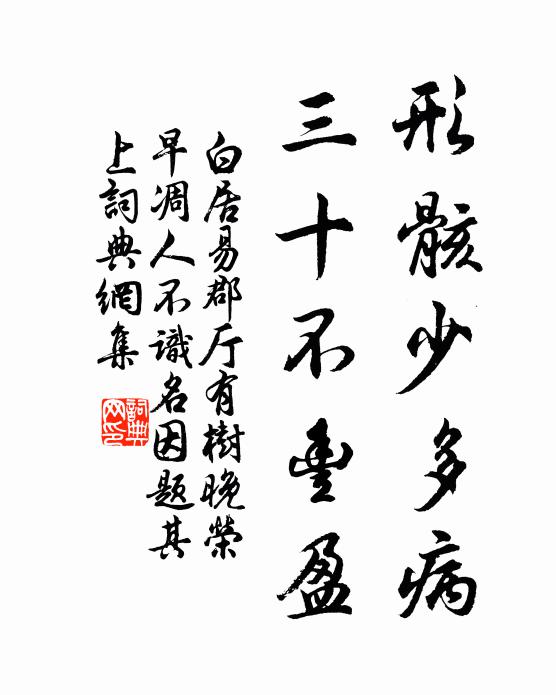 形骸少多病
三十不豐盈
白居易郡厅有樹晚榮
早凋人不識名因题其
上詞典網集
詞典网印